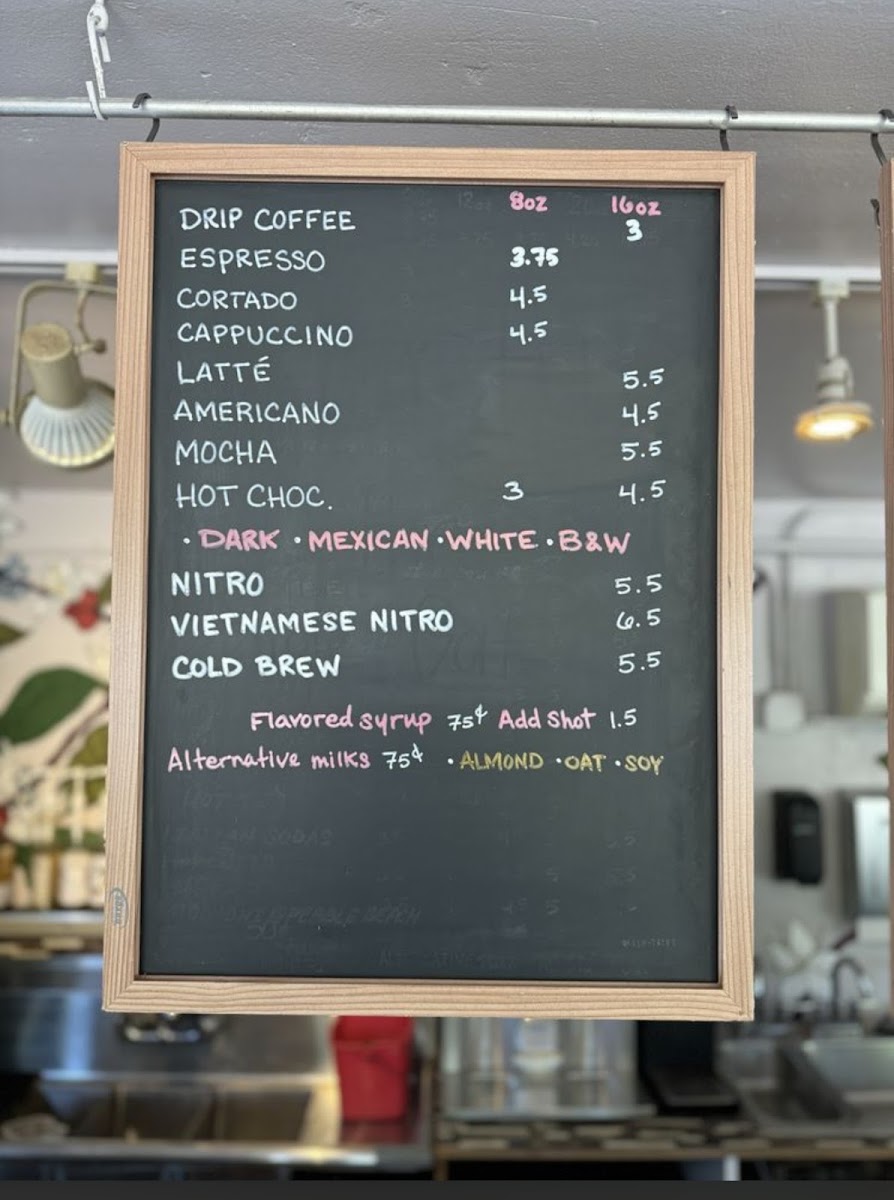 8oz 16oz
DRIP COFFEE 3
ESPRESSO 3.75
CORTADO 4.5
CAPPUCCINO 4.5
LATTÉ 5.5
AMERICANO 4.5
MOCHA 5.5
HOT CHOC. 3 4.5
· DARK · MEXICAN · WHITE · B&W
NITRO 5.5
VIETNAMESE NITRO 6.5
COLD BREW 5.5
Flavored syrup 75¢ Add Shot 1.5
Alternative milks 75¢ · ALMOND · OAT · SOY